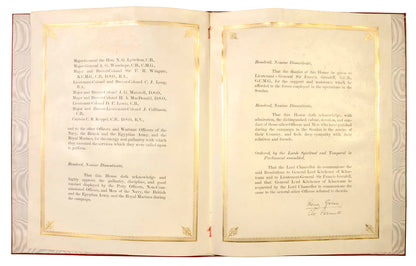 Major-General the Hon. N. G. Lyttelton, C.B.,
Major-General A. G. Wauchope, C.B., C.M.G.,
Major and Brevet-Colonel Sir F. R. Wingate,
K.C.M.G., C.B., D.S.O., R.A.,
Lieutenant-Colonel and Brevet-Colonel C. J. Long,
R.A.,
Major and Brevet-Colonel J. G. Maxwell, D.S.O.,
Major and Brevet-Colonel H. A. MacDonald, D.S.O.,
Lieutenant-Colonel D. F. Lewis, C.B.,
Major and Brevet-Lieutenant-Colonel J. Collinson,
C.B.,
Captain C. R. Keppel, C.B., D.S.O., R.N.,
and to the other Officers and Warrant Officers of the
Navy, the British and the Egyptian Army, and the
Royal Marines, for the energy and gallantry with which
they executed the services which they were called upon
to perform.
Resolved, Nemine Dissentiente,
That this House doth acknowledge and
highly approve the gallantry, discipline, and good
conduct displayed by the Petty Officers, Non-Com-
missioned Officers, and Men of the Navy, the British
and the Egyptian Army, and the Royal Marines during
the campaign.
Resolved, Nemine Dissentiente,
That the thanks of this House be given to
Lieutenant-General Sir Francis Grenfell, G.C.B.,
G.C.M.G., for the support and assistance which he
afforded to the forces employed in the operations in the
Soudan.
Resolved, Nemine Dissentiente,
That this House doth acknowledge, with
admiration, the distinguished valour, devotion, and con-
duct of those other Officers and Men who have perished
during the campaign in the Soudan in the service of
their Country, and feels deep sympathy with their
relatives and friends.
Ordered, by the Lords Spiritual and Temporal in
Parliament assembled,
That the Lord Chancellor do communicate the
said Resolutions to General Lord Kitchener of Khartoum
and to Lieutenant-General Sir Francis Grenfell,
and that General Lord Kitchener of Khartoum be
requested by the Lord Chancellor to communicate the
same to the several other Officers referred to therein.